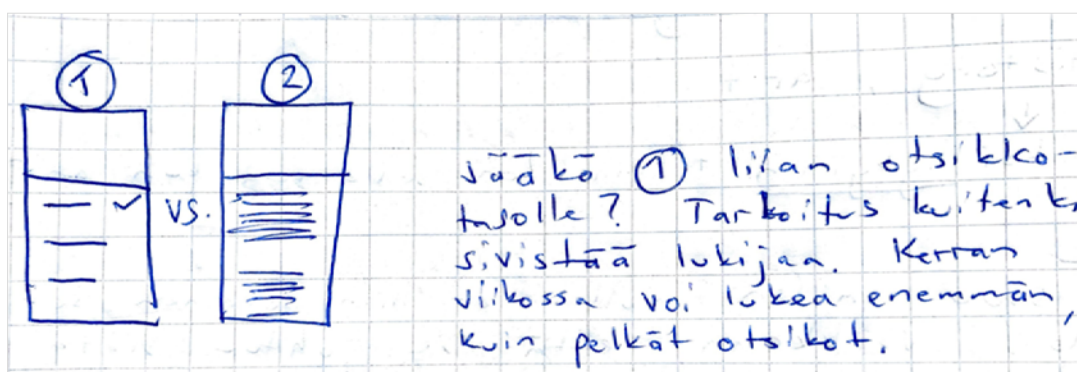 1
2
vs.
Jääkö 1 liian otsikko-
tasolle? Tarkoitus kuitenk
sivistää lukijaa. Kerran
viikossa voi lukea enemmän
kuin pelkät otsikot.